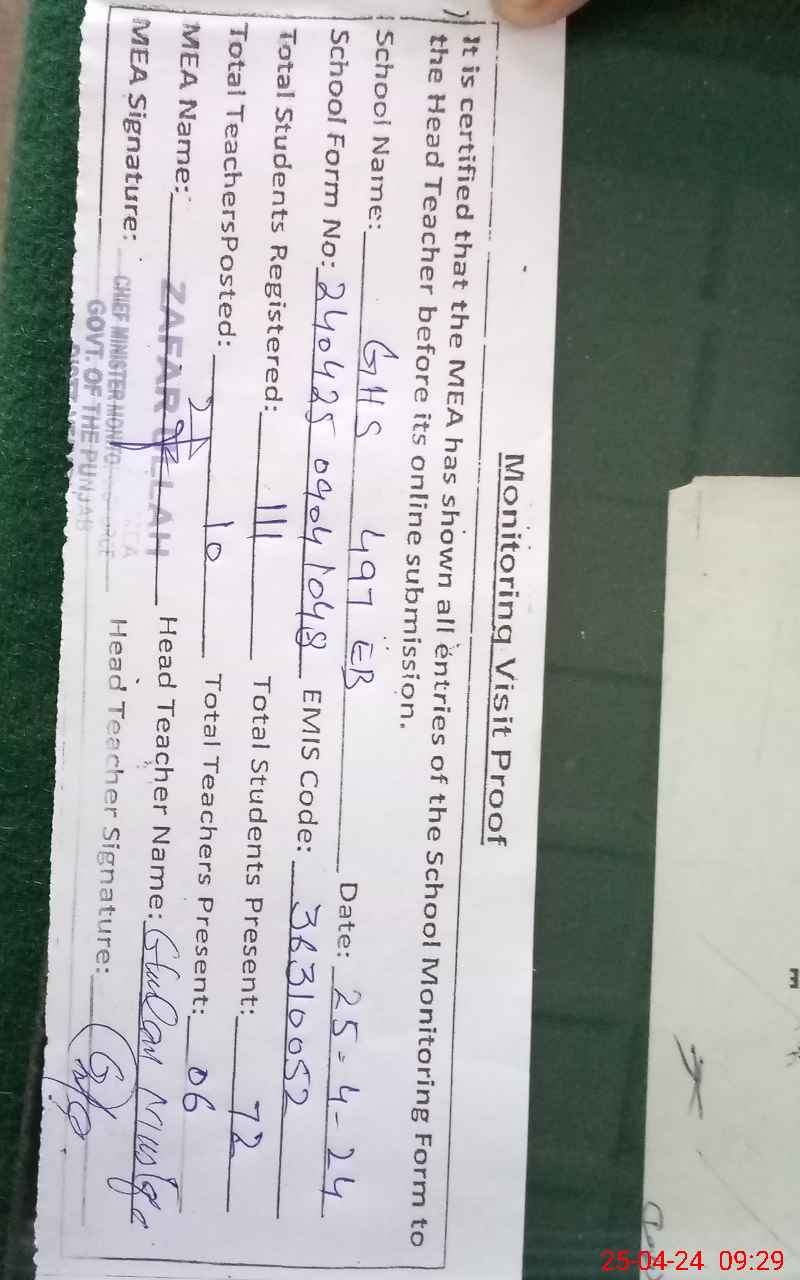 Monitoring Visit Proof
) It is certified that the MEA has shown all entries of the School Monitoring Form to
the Head Teacher before its online submission.
School Name: GHS 497 EB Date: 25-4-24
School Form No: 240425 0904 1048 EMIS Code: 36310052
Total Students Registered: 111 Total Students Present: 72
Total TeachersPosted: 10 Total Teachers Present: 06
MEA Name: ZAFAR ULLAH Head Teacher Name: Ghulam Mustafa
MEA Signature: Head Teacher Signature:
CHIEF MINISTER MONITO
GOVT. OF THE PUNJAB
25-04-24 09:29